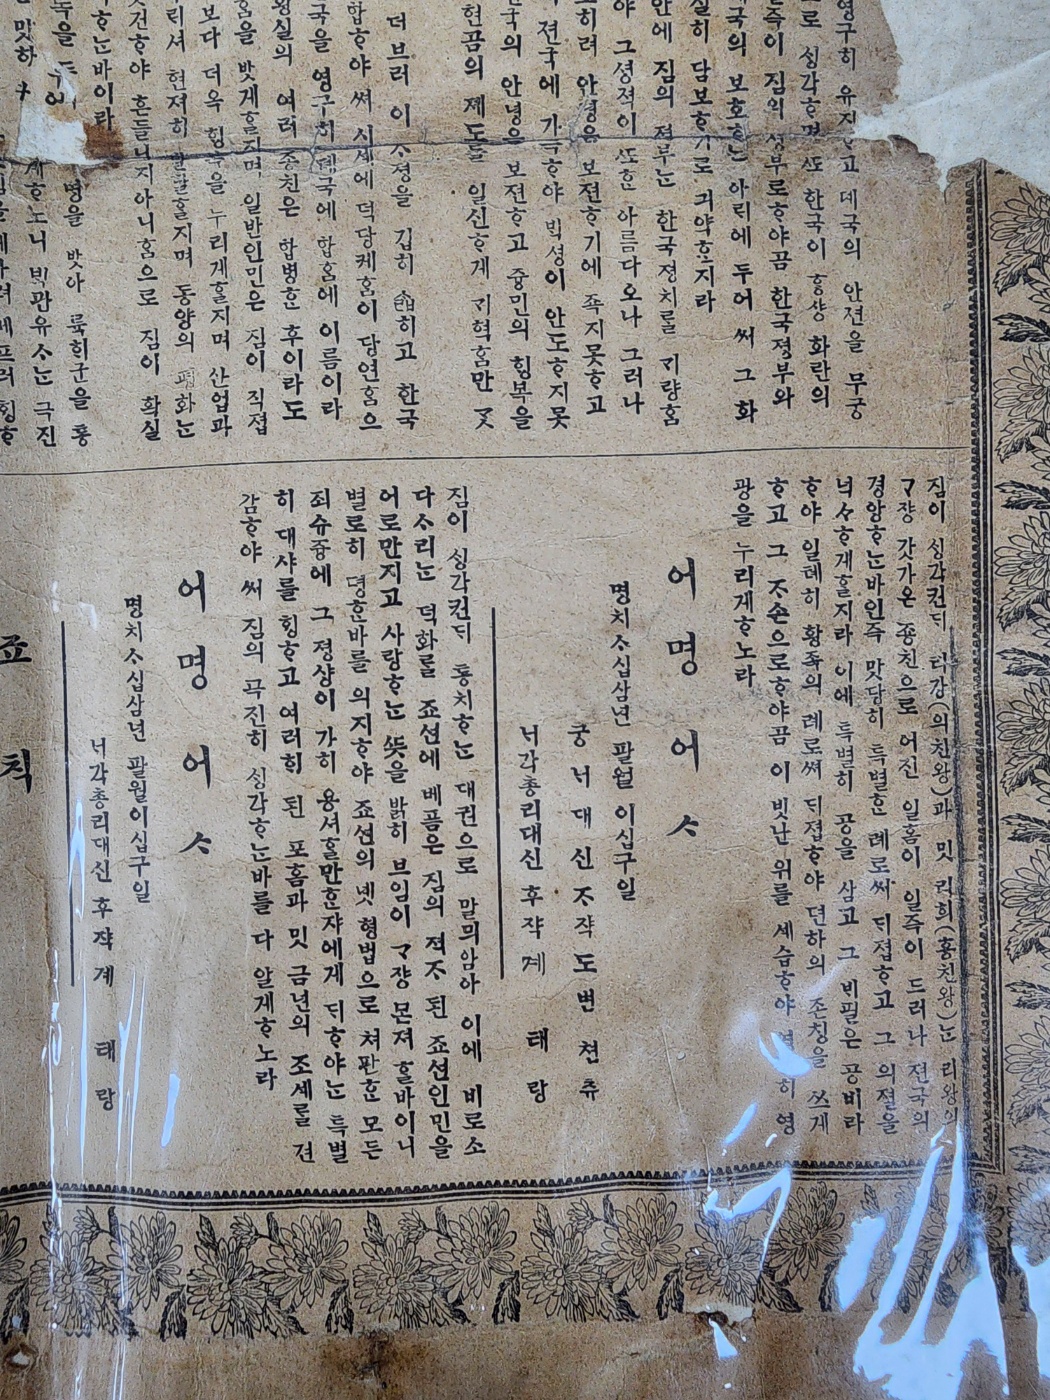 영구히 유지 고 뎨국의 안젼을 무궁
로 싱각ᄒ며 ᄯᅩ 한국이 ᄒᆼ상 화란의
즉이 짐의 졍부로ᄒ야곰 한국졍부와
국의 보호ᄒ는 아리에 두어 써 그 화
실히 담보ᄒ기로 긔약ᄒ지라
안에 짐의 졍부는 한국졍치를 ᄀᆡ량홈
야 그 셩젹이 ᄯᅩ한 아름다오나 그러나
히려 안령을 보젼ᄒ기에 족지못ᄒ고
젼국에 가득ᄒ야 빅셩이 안도ᄒ지못
국의 안녕을 보젼ᄒ고 즁민의 힝복을
현금의 졔도를 일신ᄒ게 ᄀᆡ혁홈만 ᄀᆞᆺ
더브러 이 ᄉᆞ졍을 깁히 ᄉᆞᆲ히고 한국
합ᄒ야 써 시세에 덕당케ᄒ이 당연홈으
국을 영구히 뎨국에 합홈에 이름이라
왕실의 여러 죵친은 합병ᄒᆞᆫ 후이라도
홈을 밧게ᄒᆞᆯ지며 일반인민은 짐이 직졉
보다 더옥 힘을 누리게ᄒᆞᆯ지며 산업과
리셔 현져히 발달ᄒᆞᆯ지며 동양의 평화는
ᄒ야 흔들니지아니홈으로 짐이 확실
ᄒ는바이라
명을 밧아 륙ᄒᆡ군을 통
케ᄒ노니 빅관유ᄉᆞ는 극진
짐이 싱각컨ᄃᆡ 리강(의친왕)과 밋 리희(흥친왕)는 리왕의
ᄀᆞ쟝 갓가은 죵친으로 어진 일홈이 일즉이 드러나 젼국의
경앙ᄒ는바인즉 맛당히 특별ᄒᆞᆫ 례로써 ᄃᆡ졉ᄒ고 그 의졀을
넉ᄉᆞᄒ게ᄒᆞᆯ지라 이에 특별히 공을 삼고 그 비필은 공비라
ᄒ야 일톄히 황족의 례로써 ᄃᆡ졉ᄒ야 뎐하의 존칭을 쓰게
ᄒ고 그 ᄌᆞ손으로ᄒ야곰 이 빗난 위를 셰습ᄒ야 영히 영
광을 누리게ᄒ노라
어명어ᄉᆡ
명치ᄉᆞ십삼년 팔월 이십구일
궁ᄂᆡ대신 ᄌᆞ쟉 도변쳔츄
ᄂᆡ각총리대신 후쟉 계 태랑
짐이 싱각컨ᄃᆡ 통치ᄒ는 대권으로 말ᄆᆡ암아 이에 비로소
다ᄉᆞ리는 덕화를 죠션에 베픔은 짐의 젹ᄌᆞ 된 죠션인민을
어로만지고 사랑ᄒ는 ᄯᅳᆺ을 밝히 브임이 ᄀᆞ쟝 몬져 ᄒᆞᆯ바이니
별로히 뎡ᄒᆞᆫ바를 의지ᄒ야 죠션의 녯 형법으로 쳐판ᄒᆞᆫ 모든
죄슈즁에 그 졍상이 가히 용셔ᄒᆞᆯ만ᄒᆞᆫ쟈에게 ᄃᆡᄒ야는 특별
히 대샤를 ᄒᆡᆼᄒ고 여러ᄒᆡ 된 포흠과 밋 금년의 조세를 견
감ᄒ야 써 짐의 극진히 싱각ᄒ는바를 다 알게ᄒ노라
어명어ᄉᆡ
명치ᄉᆞ십삼년 팔월이십구일
ᄂᆡ각총리대신 후쟉 계 태랑
죠칙